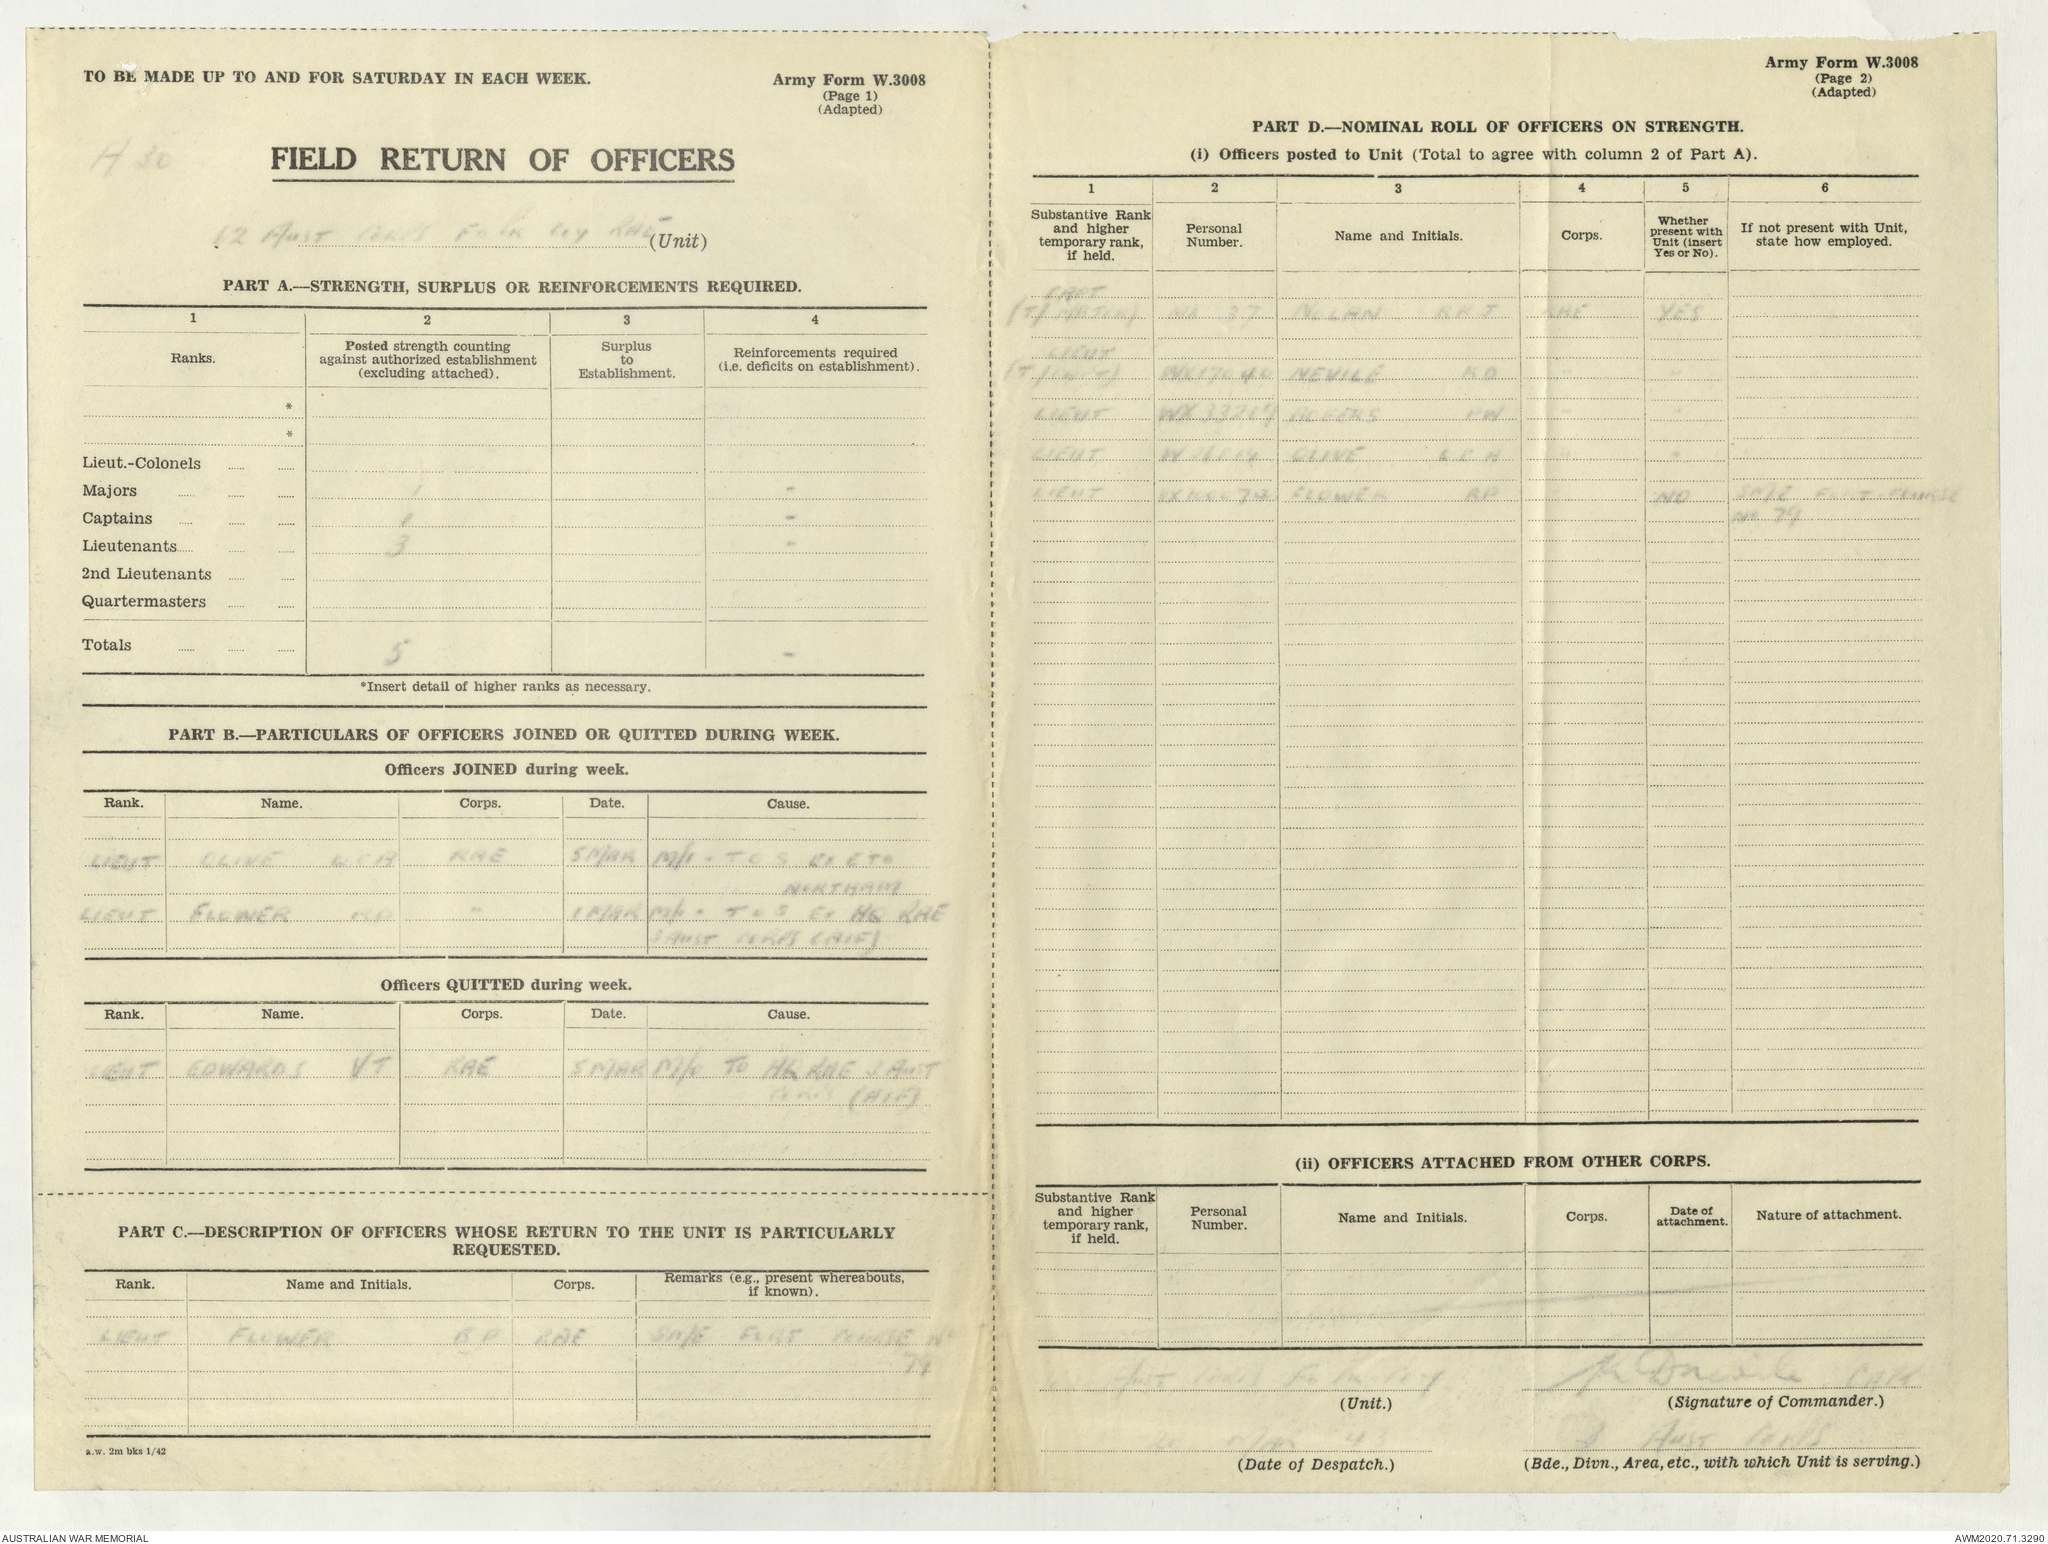 TO BE MADE UP TO AND FOR SATURDAY IN EACH WEEK.
Army Form W.3008
(Page 1)
(Adapted)
A 30
FIELD RETURN OF OFFICERS
Aust Corps (Unit)
PART A.—STRENGTH, SURPLUS OR REINFORCEMENTS REQUIRED.
1 2 3 4
Ranks. Posted strength counting against authorized establishment (excluding attached). Surplus to Establishment. Reinforcements required (i.e. deficits on establishment).
*
*
Lieut.-Colonels
Majors 1 -
Captains 1 -
Lieutenants 3 -
2nd Lieutenants
Quartermasters
Totals 5 -
*Insert detail of higher ranks as necessary.
PART B.—PARTICULARS OF OFFICERS JOINED OR QUITTED DURING WEEK.
Officers JOINED during week.
Rank. Name. Corps. Date. Cause.
LIEUT CLIVE RAE 5 MAR M/I - T O S Ex E T D
NORTHAM
LIEUT FLOWER RP " 1 MAR T O S Ex HQ RAE
3 AUST CORPS (AIF)
Officers QUITTED during week.
Rank. Name. Corps. Date. Cause.
LIEUT EDWARDS VT RAE 5 MAR M/O TO HQ RAE 3 AUST
CORPS (AIF)
PART C.—DESCRIPTION OF OFFICERS WHOSE RETURN TO THE UNIT IS PARTICULARLY
REQUESTED.
Rank. Name and Initials. Corps. Remarks (e.g., present whereabouts, if known).
LIEUT FLOWER RP RAE SM/E COURSE No
79
a.w. 2m bks 1/42
Army Form W.3008
(Page 2)
(Adapted)
PART D.—NOMINAL ROLL OF OFFICERS ON STRENGTH.
(i) Officers posted to Unit (Total to agree with column 2 of Part A).
1 2 3 4 5 6
Substantive Rank and higher temporary rank, if held. Personal Number. Name and Initials. Corps. Whether present with Unit (insert Yes or No). If not present with Unit, state how employed.
CAPT
(T/MAJOR) NOLAN RAE YES
LIEUT
(T/CAPT) NEVILE KD " "
LIEUT ROGERS " "
LIEUT CLIVE " "
LIEUT FLOWER RP " NO SM/E COURSE
No 79
(ii) OFFICERS ATTACHED FROM OTHER CORPS.
Substantive Rank and higher temporary rank, if held. Personal Number. Name and Initials. Corps. Date of attachment. Nature of attachment.
Aust Corps
(Unit.)
Capt
(Signature of Commander.)
Mar 43
(Date of Despatch.)
3 Aust Corps
(Bde., Divn., Area, etc., with which Unit is serving.)
AUSTRALIAN WAR MEMORIAL
AWM2020.71.3290